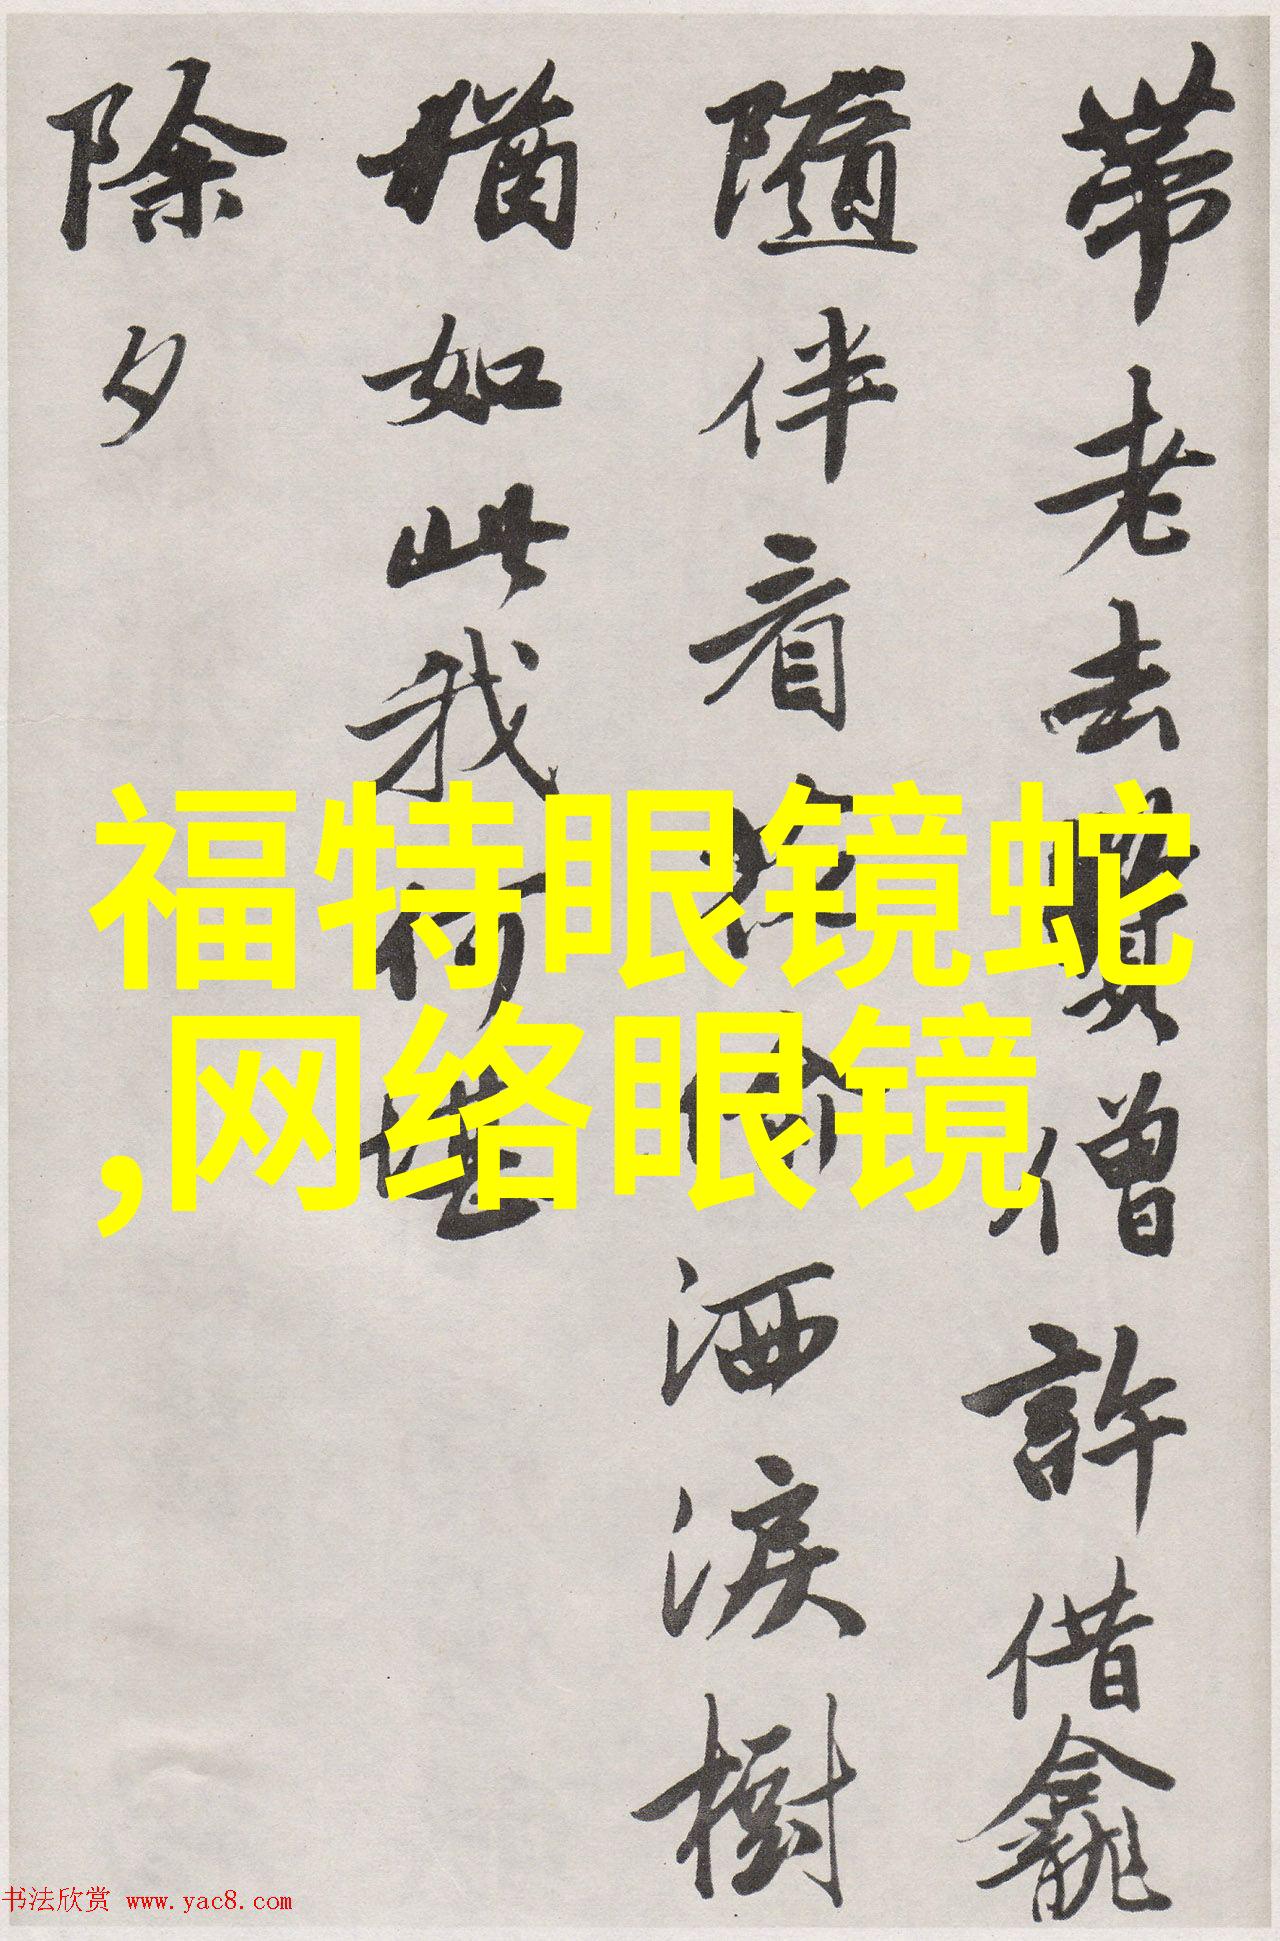 帶老去買僧許借龕
隨伴看洒淚樹
猶如此我何堪
除夕
福特眼镜蛇
,网络眼镜
书法欣赏 www.yac8.com